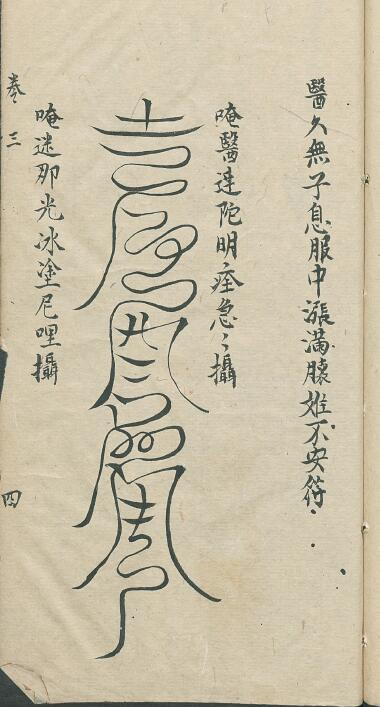 醫久無子息服中漲滿胎姙不安符
唵醫達陀明痊急〻攝
唵迷那光冰塗尼哩攝
卷三
四